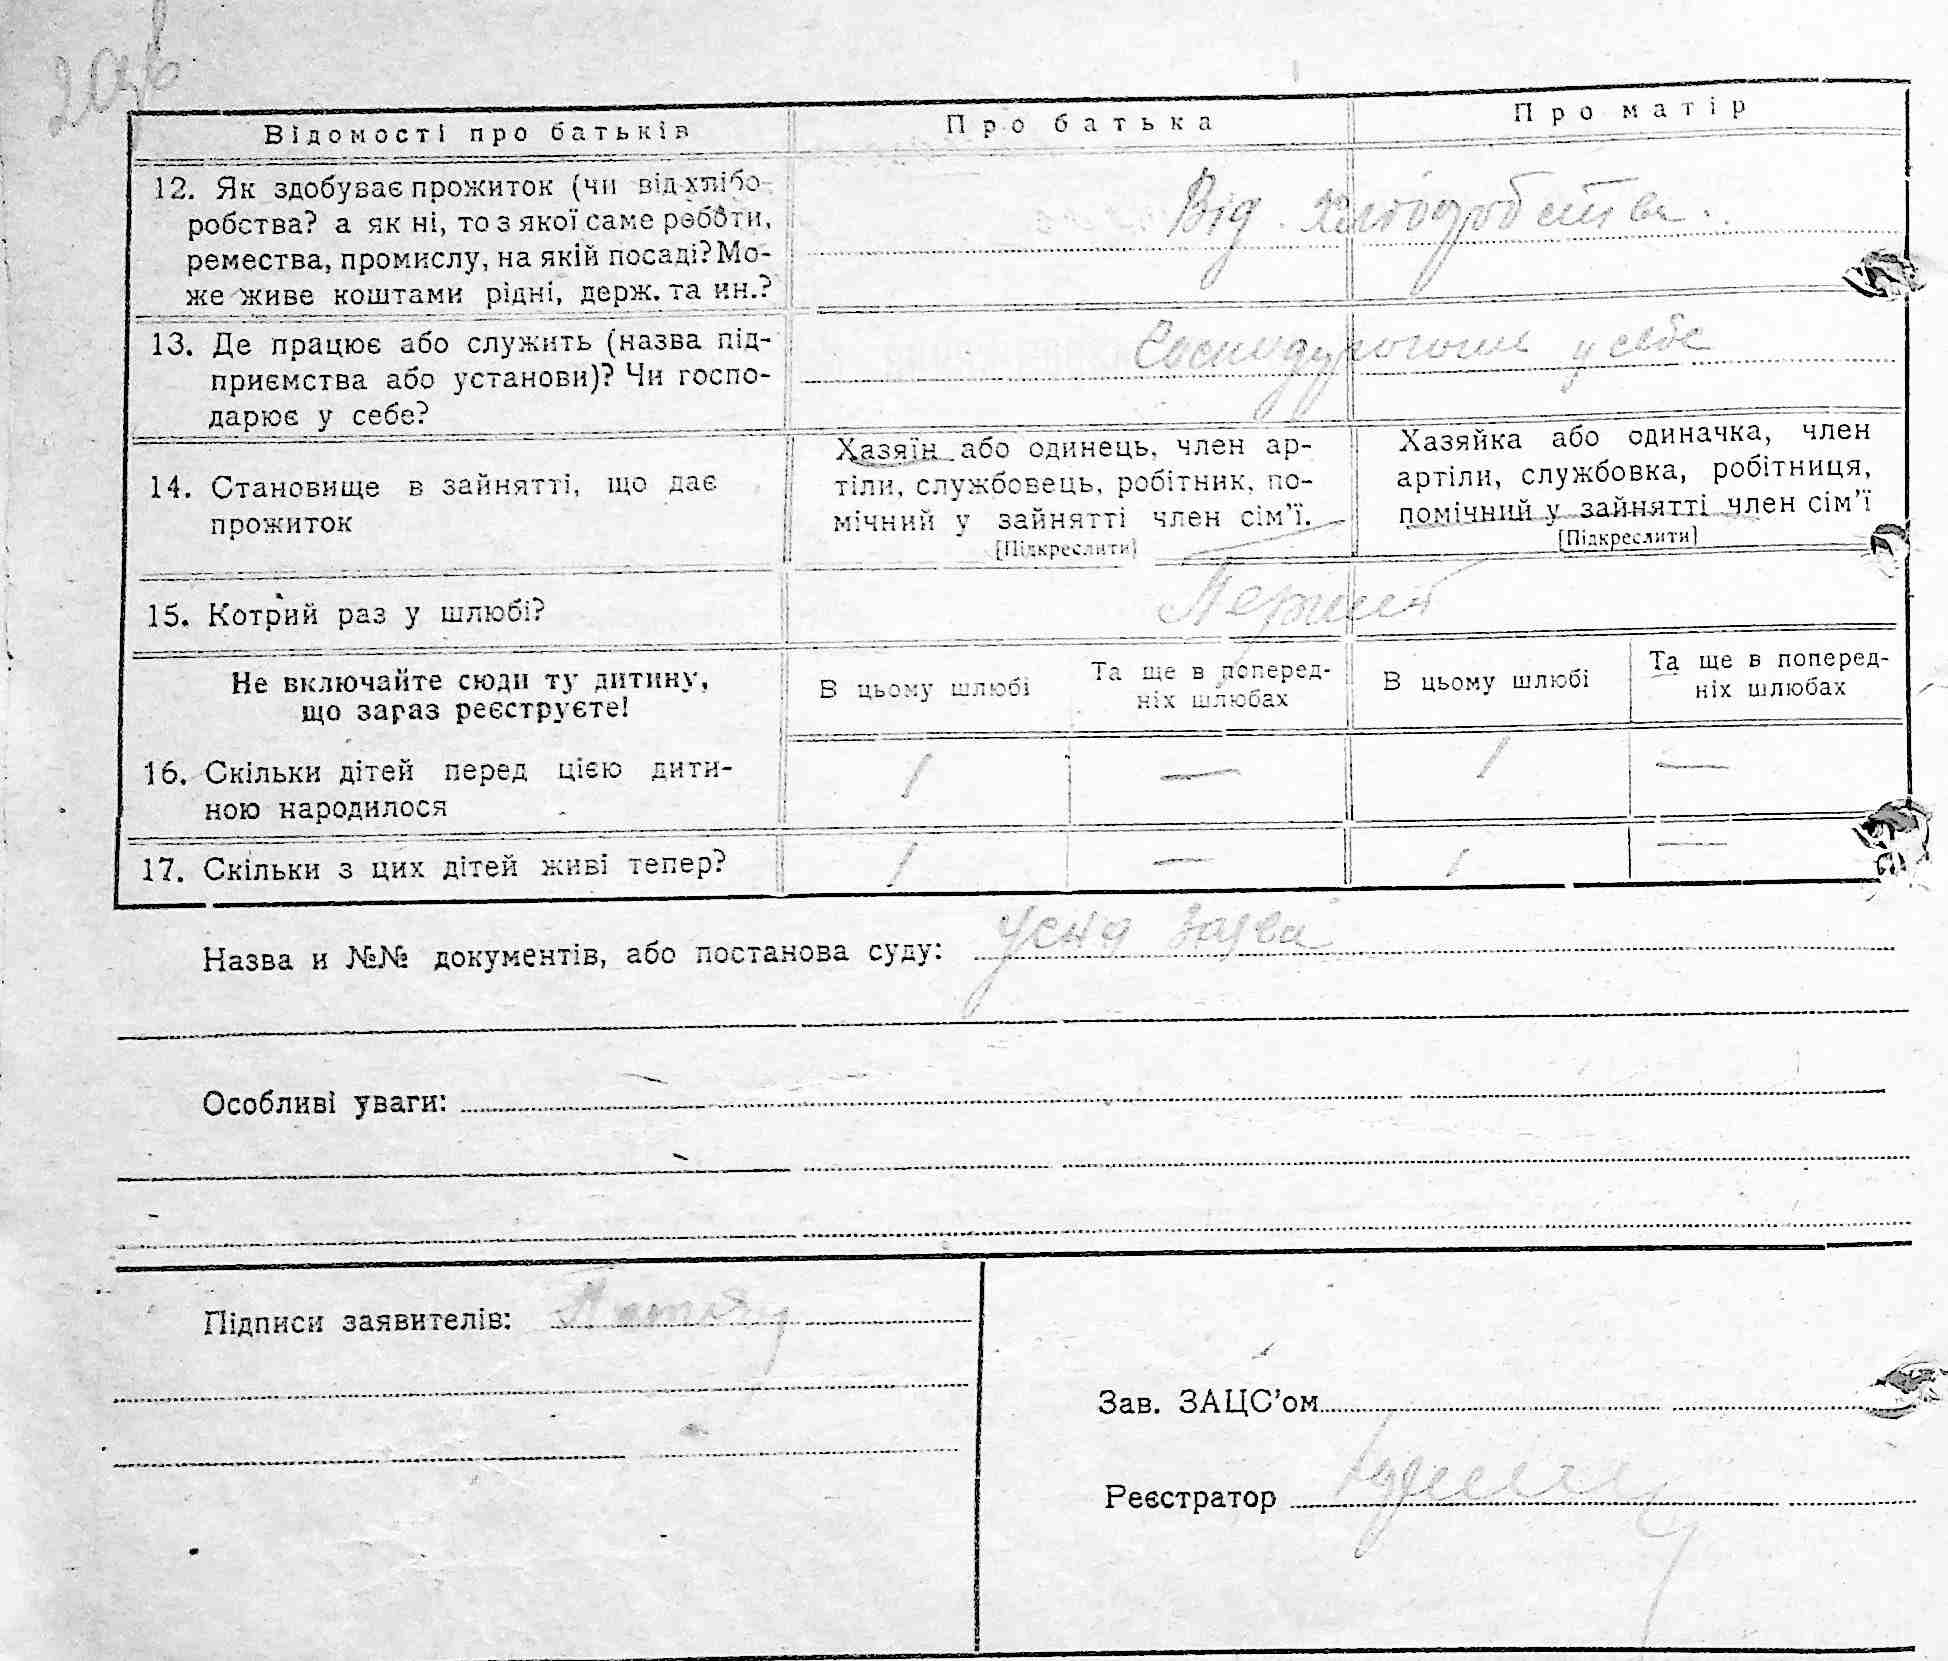 Відомості про батьків Про батька Про матір
12. Як здобуває прожиток (чи від хлібо-
робства? а як ні, то з якої саме роботи,
ремества, промислу, на якій посаді? Мо-
же живе коштами рідні, держ. та ин.?
Від хліборобства.
13. Де працює або служить (назва під-
приємства або установи)? Чи госпо-
дарює у себе?
у себе
14. Становище в зайнятті, що дає
прожиток
Хазяїн або одинець, член ар-
тіли, службовець, робітник, по-
мічний у зайнятті член сім'ї.
[Підкреслити]
Хазяйка або одиначка, член
артіли, службовка, робітниця,
помічний у зайнятті член сім'ї
[Підкреслити]
15. Котрий раз у шлюбі?
Перший
Не включайте сюди ту дитину,
що зараз реєструєте!
В цьому шлюбі
Та ще в поперед-
ніх шлюбах
В цьому шлюбі
Та ще в поперед-
ніх шлюбах
16. Скільки дітей перед цією дити-
ною народилося
1 — 1 —
17. Скільки з цих дітей живі тепер?
1 — 1 —
Назва и №№ документів, або постанова суду: Усна заява
Особливі уваги:
Підписи заявителів:
Зав. ЗАЦС'ом
Реєстратор